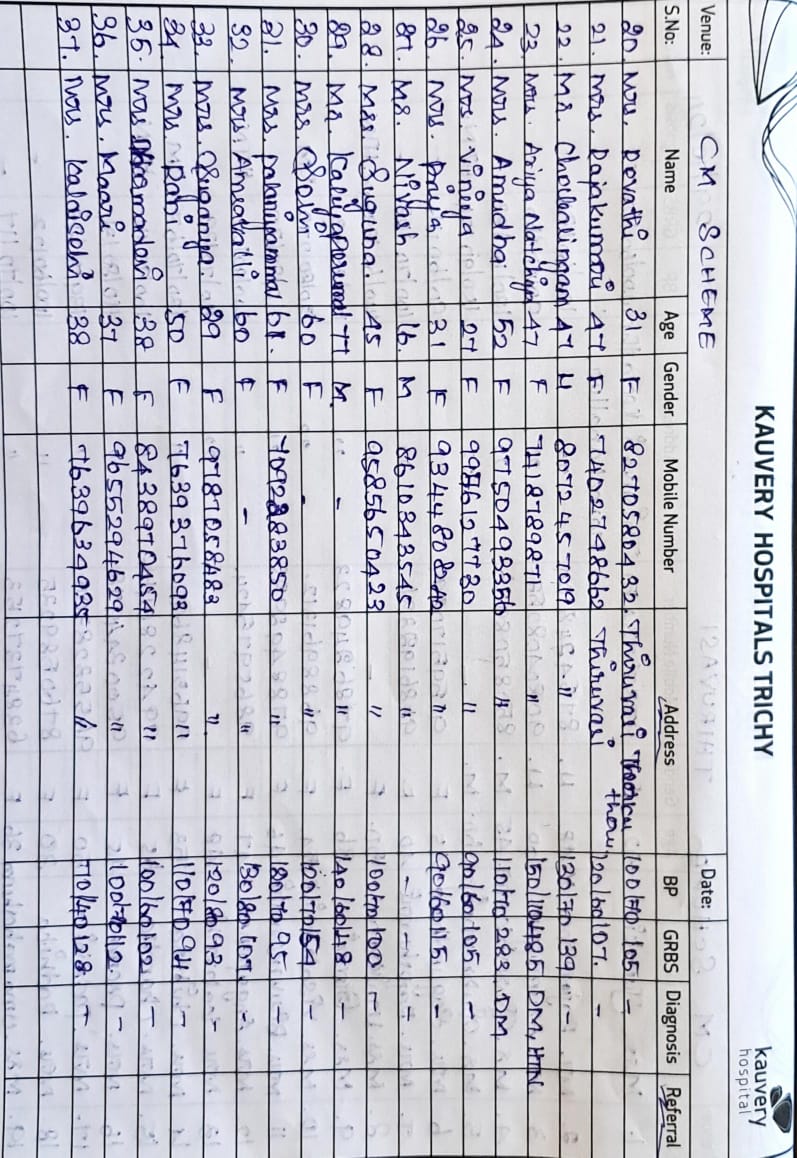 KAUVERY HOSPITALS TRICHY
kauvery
hospital
Venue: CM SCHEME Date:
S.No: Name Age Gender Mobile Number Address BP GRBS Diagnosis Referral
20. Mrs. Revathi 31 F 8270580432. 100/70 105 -
21. Mrs. Rajakumari 47 F 7402748662 Thiruvasi 120/60 107. -
22. Mr. Chokkalingam 47 M 8072457019 " 130/70 139 -
23. Mrs Ariya Natchiya 47 F 7418789871. " 150/110 485 DM, HTN
24. Mrs. Amudha 52 F 9750493356 " 110/70 283 DM
25. Mrs. Vinoya 27 F 9986127730 " 90/60 105 -
26. Mrs. Priya 31 F 9344808242 " 90/60 115 -
27. Mr. Nivash 16. M 8610343545 " - - -
28. Mrs Suguna 45 F 9585650423 " 100/70 100 -
29. Mr. Kaliyaperumal 77 M. - " 140/60 148 -
30. Mrs. 60 F - " 100/70 154 -
31. Mrs Palaniyammal 61. F 7092283850 " 180/70 95 -
32. Mrs. 60 F - " 130/80 107 -
33. Mrs. Suganya. 29 F 9787058483 ". 120/80 93 -
34 Mrs Papi 50 F 7639376093 " 110/70 94 -
35. Mrs 38 F 8438970454 " 100/60 102 -
36. Mrs. Maari 37 F 9655294629 " 100/70 112 -
37. Mrs. Kalaiselvi 38 F 7639634935 " 70/40 128 -